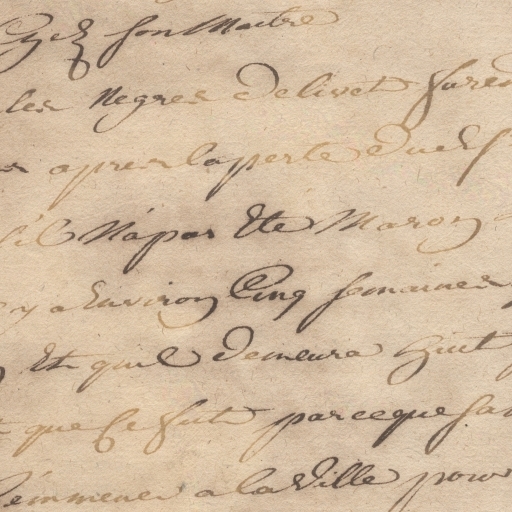 chez son Maitre
les Negres De livet furen
apres la perte du
s'il N'a pas Ete Maron
y a Environ Cinq semaines
Et quil Demeura huit
que Ce fut parceque sa
l'emmener a la Ville pour